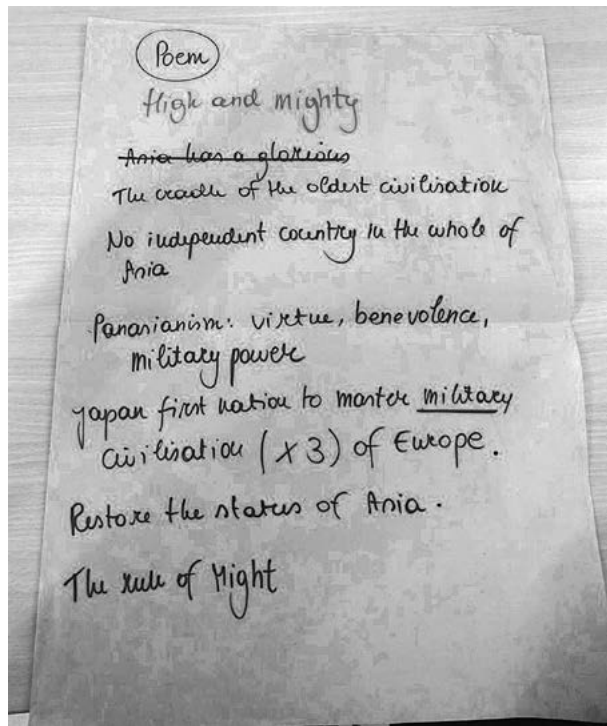 Poem
High and mighty
Asia has a glorious
The cradle of the oldest civilisation
No independent country in the whole of
Asia
Panasianism: virtue, benevolence,
military power
Japan first nation to master military
civilisation (x3) of Europe.
Restore the status of Asia.
The rule of Might